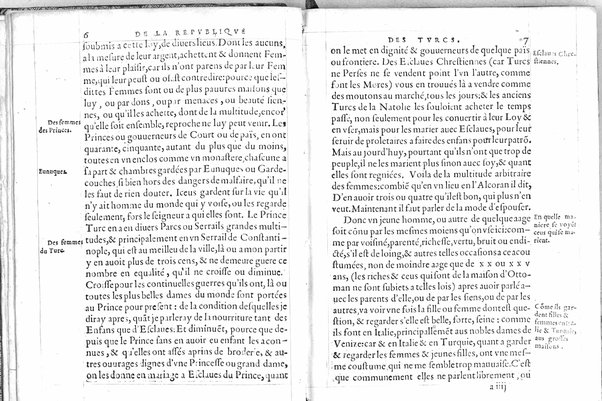 6
DE LA REPVBLIQVE
soubmis a cette loy, de diuers lieus. Dont les aucuns,
a la mesure de leur argent, achettent & donnent Fem-
mes à leur plaisir, car ils n'ont parens de par leur Fem
me, qui leur peust ou osast contredire: pource que les-
dittes Femmes sont ou de plus pauures maisons que
luy, ou par dons, ou par menaces, ou beauté sien-
nes, ou qu'illes achette, dont de la multitude, encor
qu'elle soit ensemble, reproche luy peut venir. Les
Princes ou gouuerneurs de Court ou de païs, en ont
quarante, cinquante, autant du plus que du moins,
toutes en vn enclos comme vn monastere, chascune a
sa part & chambres gardées par Eunuques ou Garde-
couches, si bien hors des dangers de malfaire, qu'il ne
les faut de rien douter. Iceus gardent sur la vie qu'il
n'y ait homme du monde qui y vose, ou les regarde
seulement, fors le seigneur a qui elles sont. Le Prince
Turc en a en diuers Parcs ou Serrails grandes multi-
tudes, & principalement en vn Serrail de Constanti-
nople, qui est au meilleu de la ville, là ou a mon partir
y en auoit plus de trois cens, & ne demeure guere ce
nombre en equalité, qu'il ne croisse ou diminue.
Croisse pour les continuelles guerres qu'ils ont, là ou
toutes les plus belles dames du monde sont portées
au Prince pour present: de la condition desquelles je
diray apres, quāt je parleray de la nourriture tant des
Enfans que d'Esclaues. Et diminuët, pource que de-
puis que le Prince sans en auoir eu enfant les a con-
nues, & q̃ elles ont assés apris de broderie, & au-
tres ouurages dignes d'vne Princesse ou grand dame,
on les donne en mariage a Esclaues du Prince, quant
Des femmes
des Princes.
Eunuques.
Des femmes
du Turc.
DES TVRCS.
7
on le met en dignité & gouuerneurs de quelque païs
ou frontiere. Des Esclaues Chrestiennes (car Turcs
ne Perses ne se vendent point l'vn l'autre, comme
font les Mores) vous en trouués là a vendre comme
des moutons au marché, tous les jours; & les anciens
Turcs de la Natolie les souloient acheter le temps
passé, non seulement pour les conuertir à leur Loy &
en vser, mais pour les marier auec Esclaues, pour leur
seruir de proletaires a faire des enfans pour leur patrō.
Mais au jourd'huy, pourtant qu'ils n'ont que trop de
peuple, il ne les marient plus sinon auec soy, & quant
elles sont regniées. Voila de la multitude arbitraire
des femmes: combiē qu'en vn lieu en l'Alcoran il dit,
D'en auoir trois ou quatre qu'il est bon, qui plus n'en
veut. Maintenant il faut parler de la mode d'espouser.
Donc vn jeune homme, ou autre de quelque aage
soit cōnu par les mesmes moiens qu'on vse ici: com-
me par voisiné, parenté, richesse, vertu, bruit ou endi-
cté, s'il est de loing, & autres telles occasions a ce acou
stumées, non de moindre aage que de xx ou xxv
ans, (les riches & ceus qui sont de la maison d'Otto-
man ne sont subiets a telles lois) apres auoir parlé a-
uec les parents d'elle, ou de par les siens, ou de par les
autres, va voir vne fois la fille ou femme dont est que-
stion, & regarder s'elle est belle, forte, seine: comme
ils font en Italie, principalemēt aus nobles dames de
Venize: car & en Italie & en Turquie, quant a garder
& regarder les femmes & jeunes filles, ont vne mes-
me coustume, qui ne me semble trop mauuaise. C'est
que communement elles ne parlent librement, où
a iiij
Esclaues Chre-
stiennes.
En quelle ma-
niere se voyēt
ceus qui se ma-
rient.
Cōme ils gar-
dent filles &
femmes en Ita-
lie & Turquie,
aus grosses
maisons.